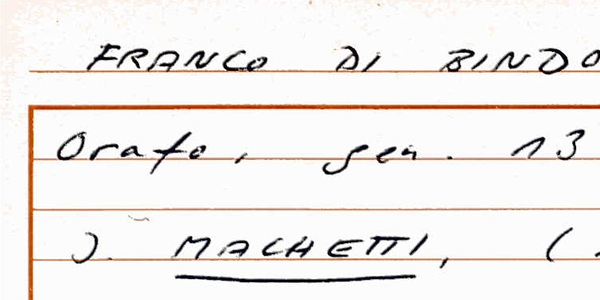 FRANCO DI BINDO
Orafo, gen. 13
J. MACHETTI, (